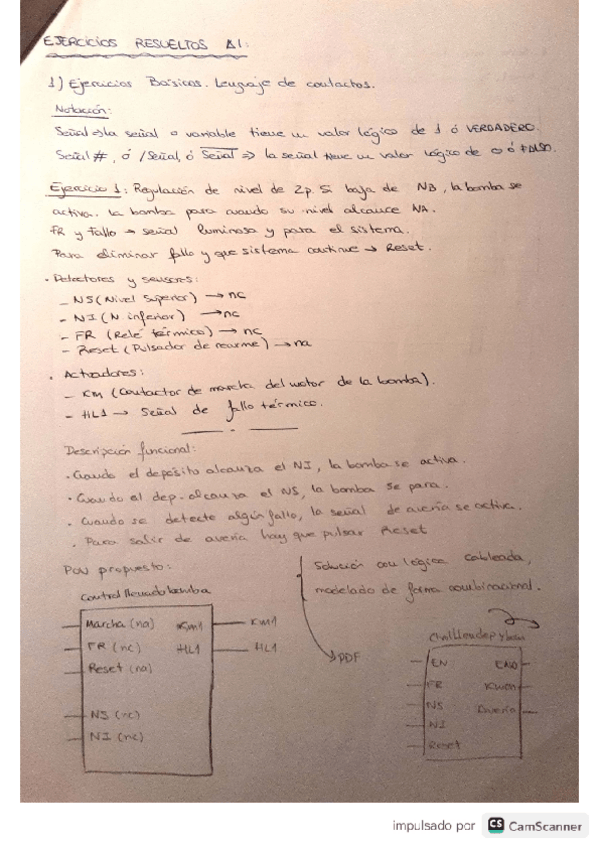 EJERCICIOS RESUELTOS A1:
1) Ejercicios Básicos. Lenguaje de contactos.
Notación:
Señal => la señal o variable tiene un valor lógico de 1 ó VERDADERO.
Señal #, ó /Señal, ó Señal => la señal tiene un valor lógico de 0 ó FALSO.
Ejercicio 1: Regulación de nivel de 2p. Si baja de NB, la bomba se
activa. La bomba para cuando su nivel alcance NA.
FR y fallo → señal luminosa y para el sistema.
Para eliminar fallo y que sistema continue → Reset.
• Detectores y sensores:
– NS (Nivel Superior) → nc
– NI (N. inferior) → nc
– FR (Relé térmico) → nc
– Reset (Pulsador de rearme) → na
• Actuadores:
– KM (Contactor de marcha del motor de la bomba).
– HL1 → Señal de fallo térmico.
Descripción funcional:
• Cuando el depósito alcanza el NI, la bomba se activa.
• Cuando el dep. alcanza el NS, la bomba se para.
• Cuando se detecte algún fallo, la señal de avería se activa.
• Para salir de avería hay que pulsar Reset
POU propuesto:
Control llenado bomba
Marcha (na) KM1 KM1
FR (nc) HL1 HL1
Reset (na)
NS (nc)
NI (nc)
Solución con lógica cableada,
modelado de forma combinacional.
PDF
EN ENO
FR
NS
NI
Reset
impulsado por CS CamScanner